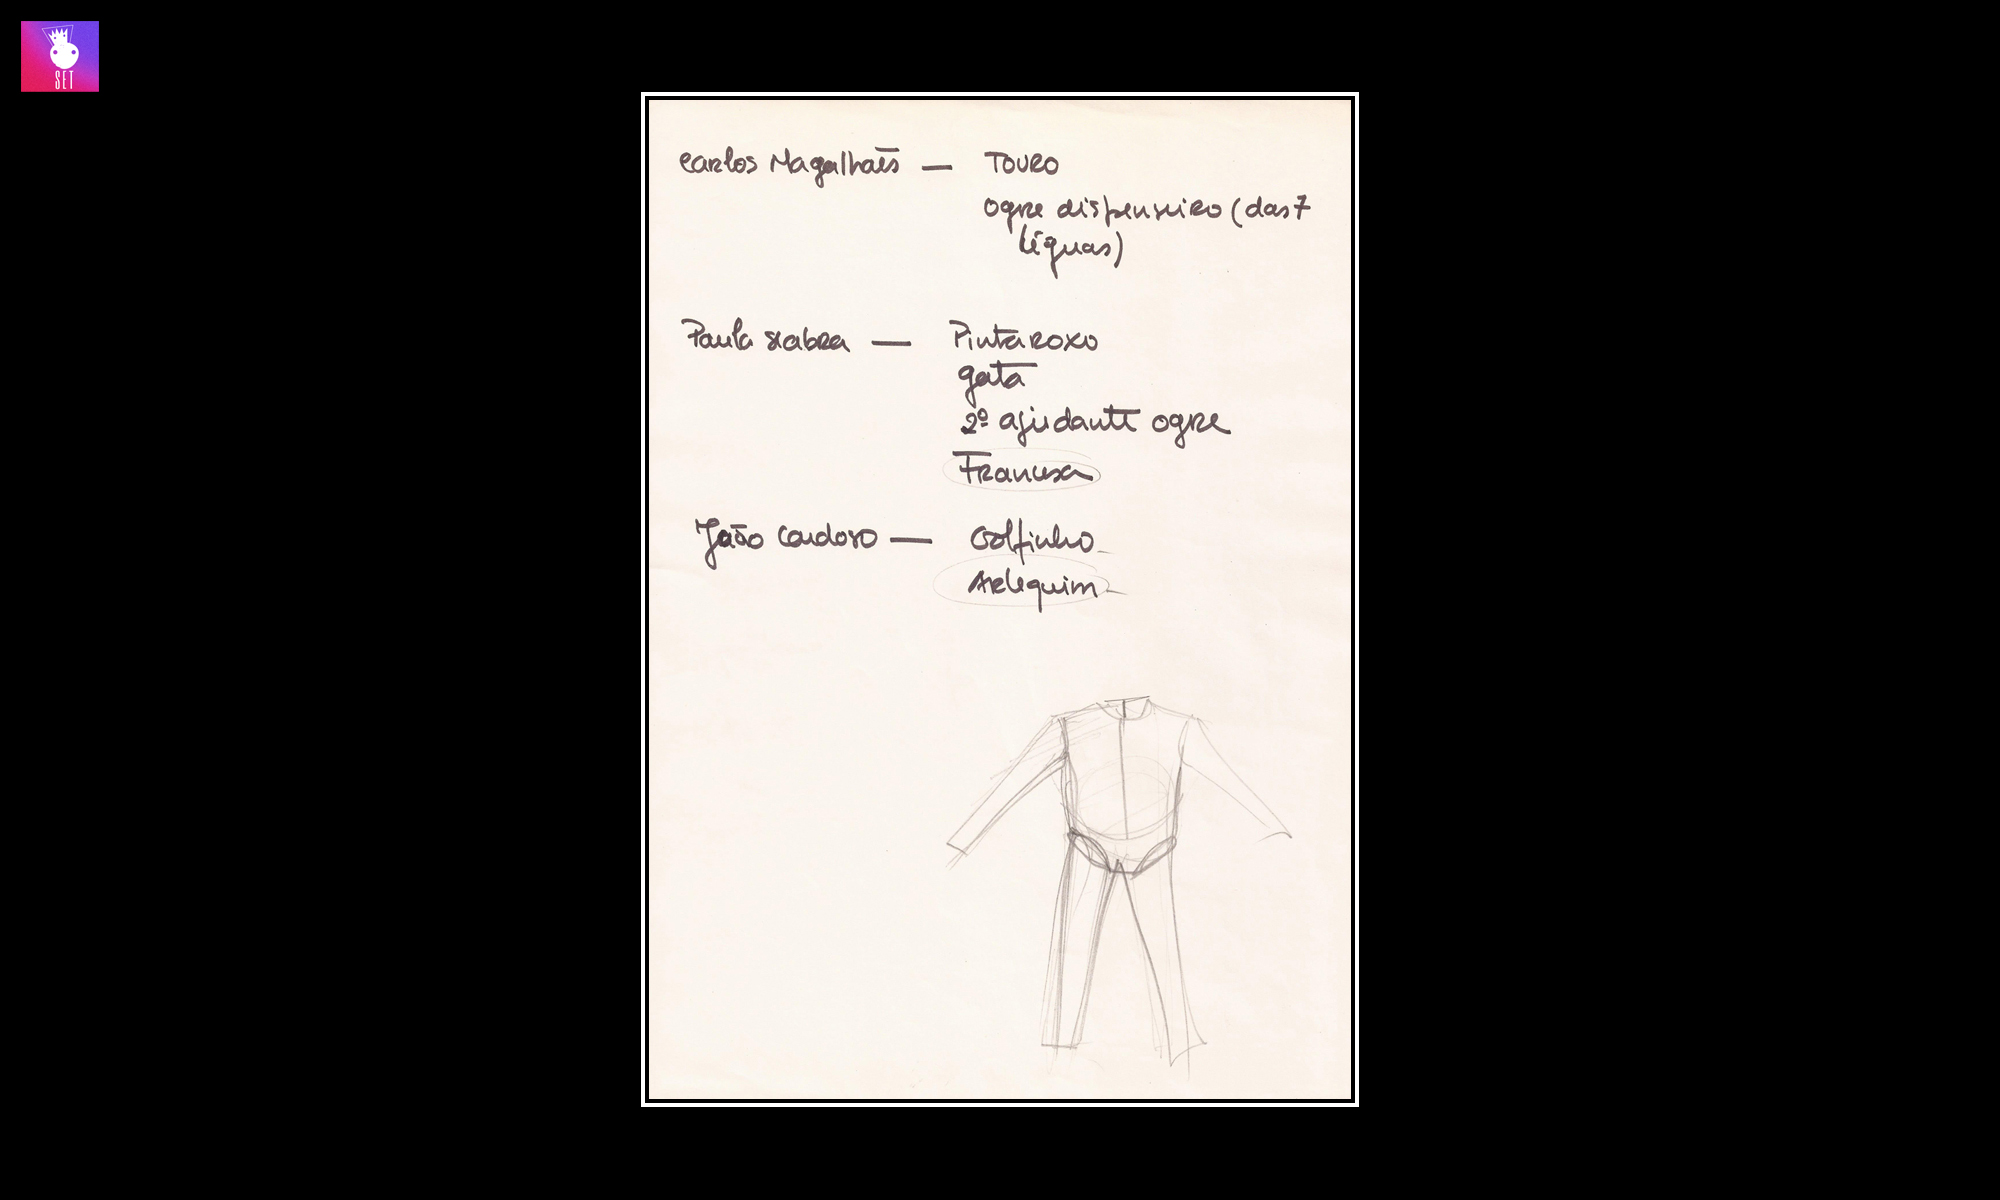 SET
Carlos Magalhães — TOURO
ogre dispenseiro (das 7
léguas)
Paula Seabra — Pintaroxo
gata
2º ajudante ogre
Francesa
João Cardoso — Golfinho
Arlequim